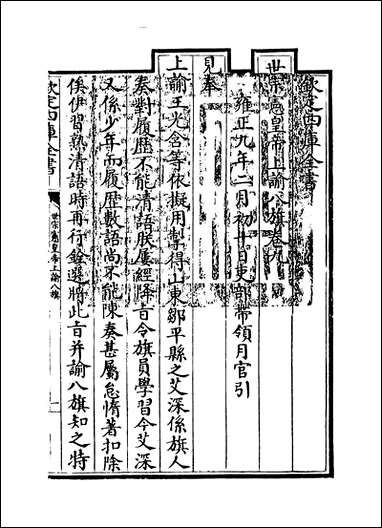 欽定四庫全書
世宗憲皇帝上諭八旗卷九
雍正九年二月初十日吏部帶領月官引
見奉
上諭王光含等依擬用掣得山東鄒平縣之艾深係旗人
奏對履歷不能清語朕屢經降旨令旗員學習今艾深
又係少年而履歷數語尚不能陳奏甚屬怠惰著扣除
俟伊習熟清語時再行銓選將此旨并諭八旗知之特
欽定四庫全書
世宗憲皇帝上諭八旗
一